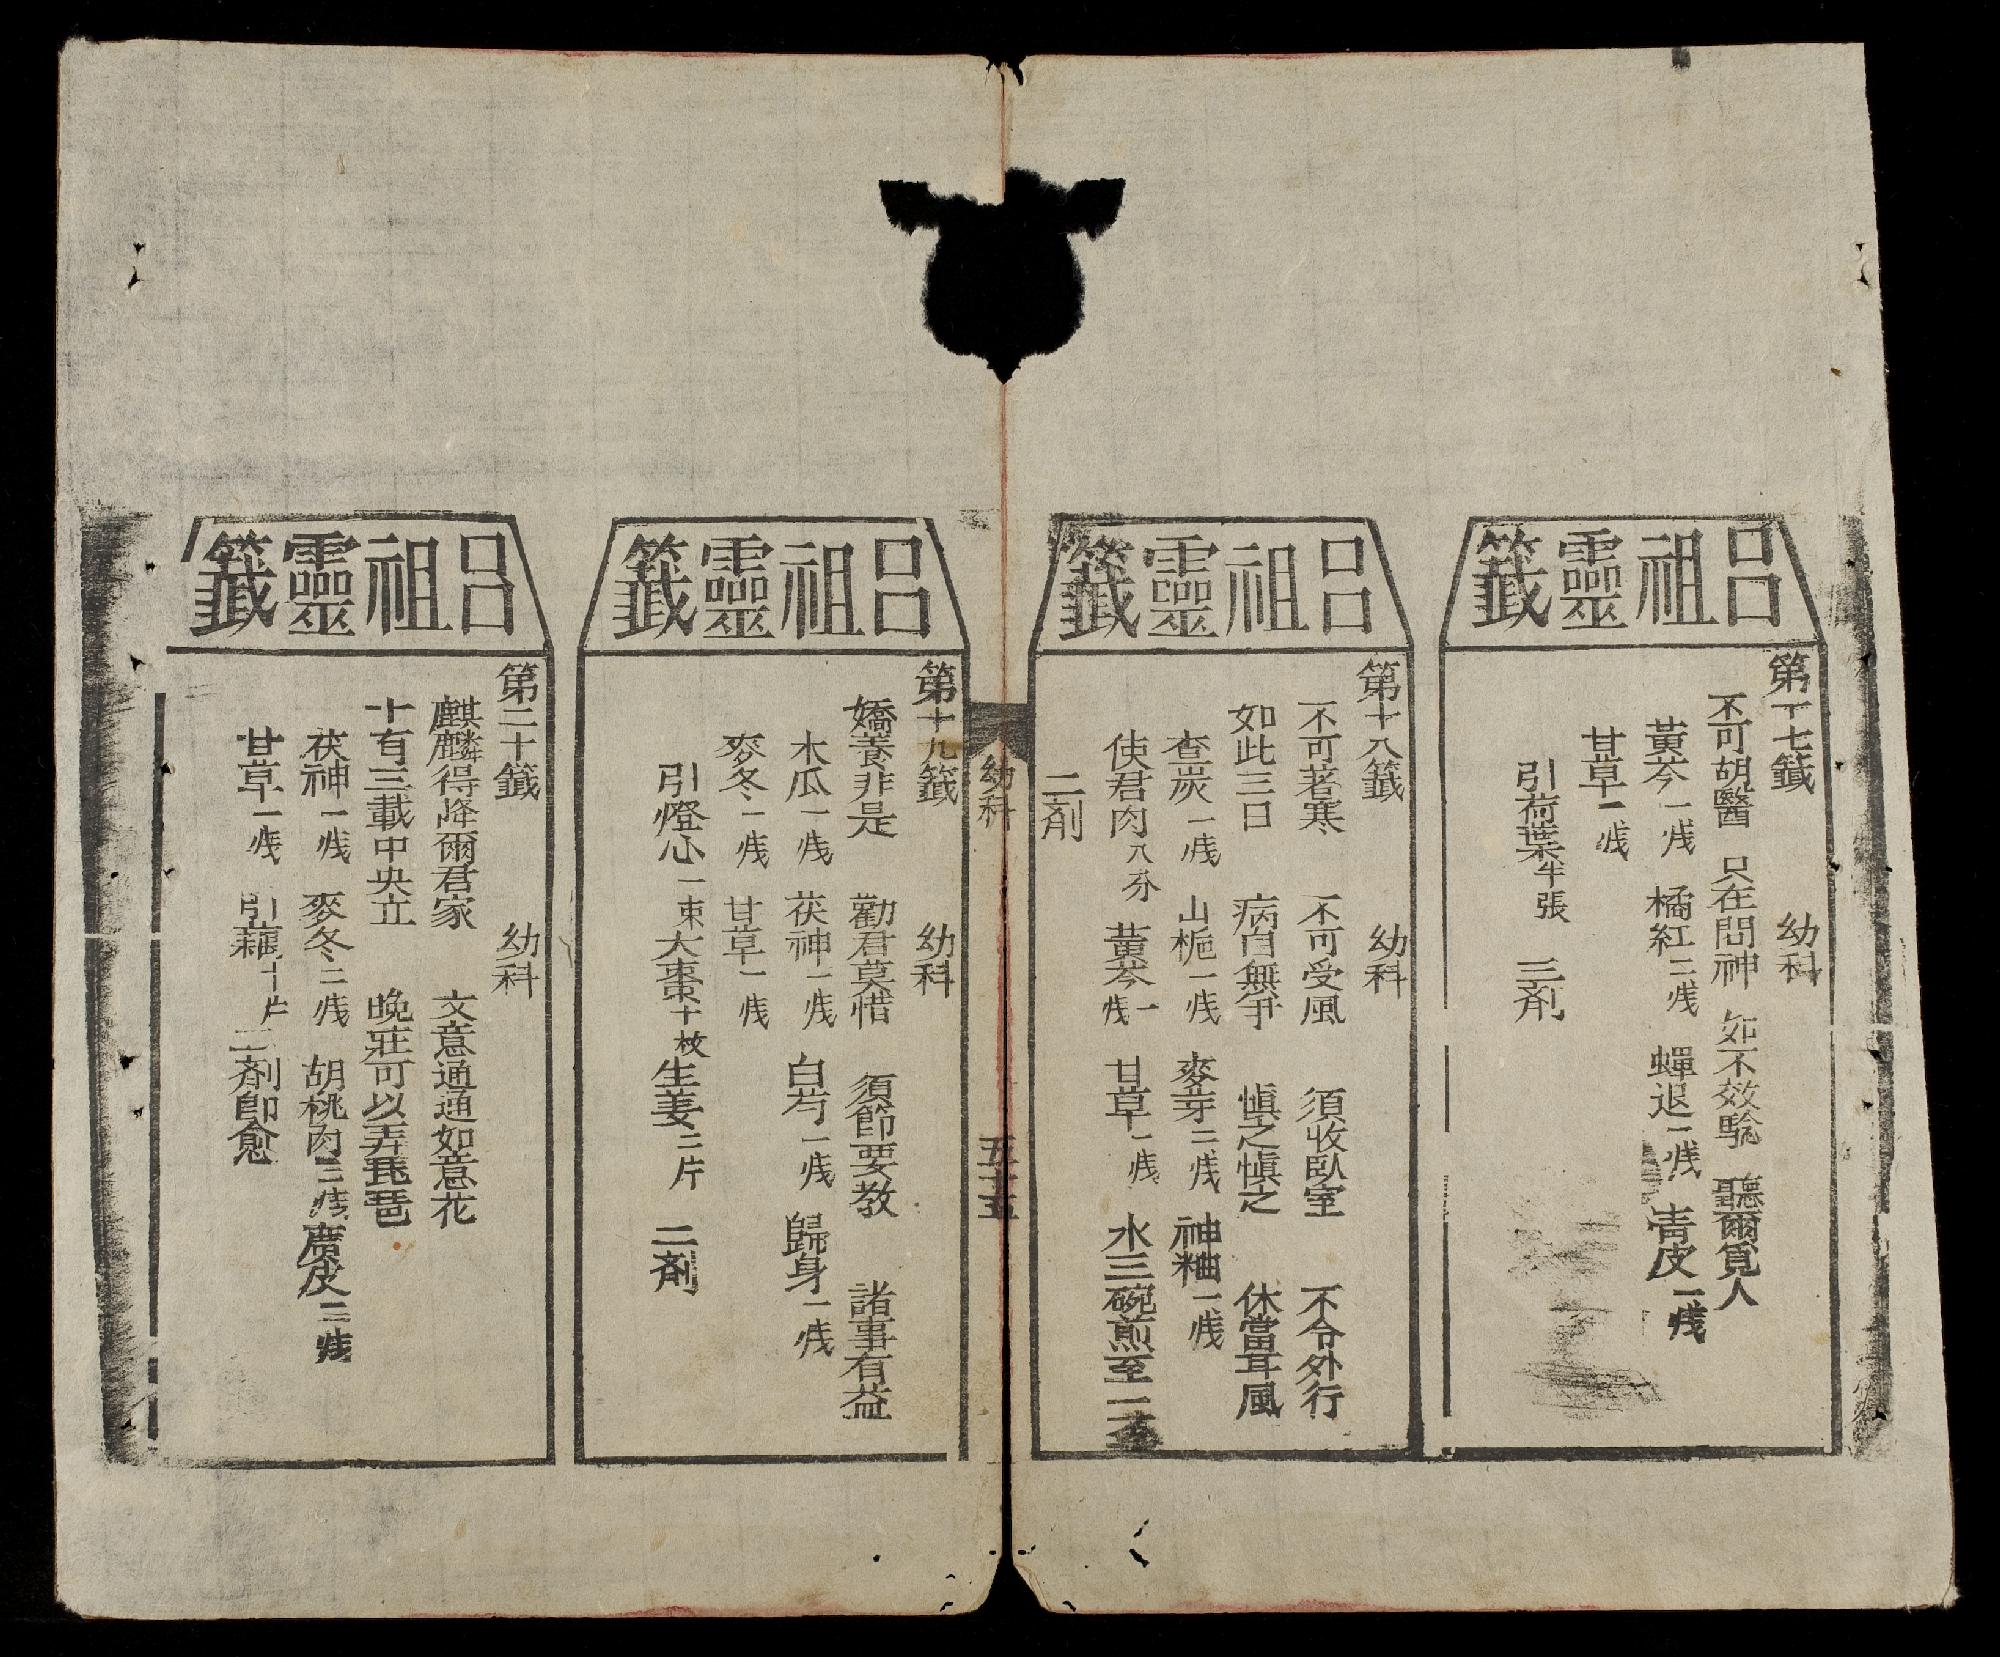 呂祖靈籤
第十七籤　幼科
不可胡醫　只在問神　如不效驗　聽爾覓人
黃芩一錢　橘紅二錢　蟬退一錢　青皮一錢
甘草一錢
引荷葉半張　三剤
呂祖靈籤
第十八籤　幼科
不可著寒　不可受風　須收臥室　不令外行
如此三日　病自無爭　慎之慎之　休當耳風
查炭一錢　山梔一錢　麥芽二錢　神粬一錢
使君肉八分　黃芩一錢　甘草一錢　水三碗煎至一
二剤
幼科
五十五
呂祖靈籤
第十九籤　幼科
嬌養非是　勸君莫惜　須節要教　諸事有益
木瓜一錢　茯神一錢　白芍一錢　歸身一錢
麥冬一錢　甘草一錢
引燈心一束大棗十枚生姜二片　二剤
呂祖靈籤
第二十籤　幼科
麒麟得降爾君家　文意通通如意花
十有三載中央立　晚莊可以弄琵琶
茯神一錢　麥冬二錢　胡桃肉三錢　廣皮二錢
甘草一錢　引藕十片　二剤即愈